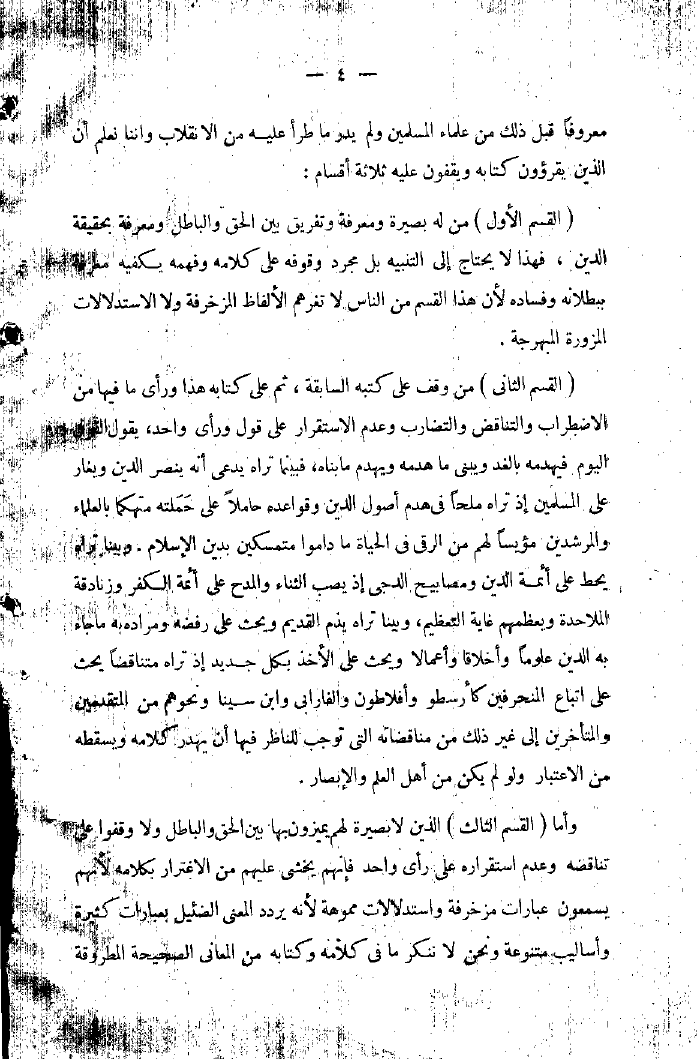 — ٤ —
معروفاً قبل ذلك من علماء المسلمين ولم يدو ما طرأ عليه من الانقلاب واننا نعلم أن
الذين يقرؤون كتابه ويقفون عليه ثلاثة أقسام :
( القسم الأول ) من له بصيرة ومعرفة وتفريق بين الحق والباطل ومعرفة بحقيقة
الدين ، فهذا لا يحتاج إلى التنبيه بل مجرد وقوفه على كلامه وفهمه يكفيه معرفة
ببطلانه وفساده لأن هذا القسم من الناس لا تغرهم الألفاظ المزخرفة ولا الاستدلالات
المزورة المبهرجة .
( القسم الثانى ) من وقف على كتبه السابقة ، ثم على كتابه هذا ورأى ما فيها من
الاضطراب والتناقض والتضارب وعدم الاستقرار على قول ورأى واحد، يقول القول
اليوم فيهدمه بالغد ويبنى ما هدمه ويهدم مابناه، فبينما تراه يدعى أنه ينصر الدين ويغار
على المسلمين إذ تراه ملحاً فى هدم أصول الدين وقواعده حاملاً على حَمَلته متهكما بالعلماء
والمرشدين مؤيساً لهم من الرقى فى الحياة ما داموا متمسكين بدين الإسلام . وبينا تراه
يحط على أئمة الدين ومصابيح الدجى إذ يصب الثناء والمدح على أئمة الكفر وزنادقة
الملاحدة ويعظمهم غاية التعظيم، وبينا تراه يذم القديم ويحث على رفضه ومراده به ماجاء
به الدين علوماً وأخلاقا وأعمالا ويحث على الأخذ بكل جديد إذ تراه متناقضاً يحث
على اتباع المنحرفين كأرسطو وأفلاطون والفارابى وابن سينا ونحوهم من المتقدمين
والمتأخرين إلى غير ذلك من مناقضاته التى توجب للناظر فيها أن يهدر كلامه ويسقطه
من الاعتبار ولو لم يكن من أهل العلم والإبصار .
وأما ( القسم الثالث ) الذين لابصيرة لهم يميزون بها بين الحق والباطل ولا وقفوا على
تناقضه وعدم استقراره على رأى واحد فإنهم يخشى عليهم من الاغترار بكلامه لأنهم
يسمعون عبارات مزخرفة واستدلالات مموهة لأنه يردد المعنى الضئيل بعبارات كثيرة
وأساليب متنوعة ونحن لا ننكر ما فى كلامه وكتابه من المعانى الصحيحة المطروقة